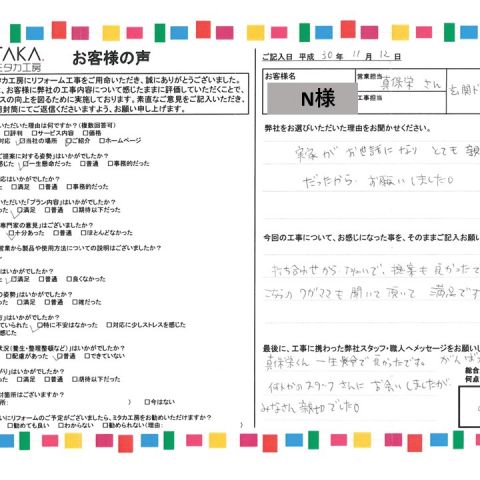 TAKA.
ミタカ工房
お客様の声
ミタカ工房にリフォーム工事をご用命いただき、誠にありがとうございました。
、お客様に弊社の工事内容について感じたままに評価していただくことで、
スの向上を図るために実施しております。素直なご意見をご記入いただき、
封筒にてご返信くださいますよう、お願い申し上げます。
いただいた理由は何ですか？(複数回答可)
□評判 □サービス内容 □価格
対応 □当社の場所 □ご紹介 □ホームページ
ご提案に対する姿勢」はいかがでしたか？
感じた □一生懸命だった □普通 □事務的だった
応はいかがでしたか？
った □満足 □普通 □事務的だった
いただいた「プラン内容」はいかがでしたか？
った □満足 □普通 □期待以下だった
専門家の意見」はございましたか？
□十分あった □普通 □ほとんどなかった
営業から製品や使用方法についての説明はございましたか？
はいかがでしたか？
った □満足 □普通 □良くなかった
の姿勢」はいかがでしたか？
った □満足 □普通 □雑だった
方」はいかがでしたか？
ていられた □特に不安はなかった □対応に少しストレスを感じた
感じた
状況(養生・整理整頓など)」はいかがでしたか？
□配慮があった □普通 □できていない
がり」はいかがでしたか？
った □満足 □普通 □期待以下だった
討箇所はございますか？
□今はない
いにリフォームのご予定がございましたら、ミタカ工房をお勧めいただけますか？
□勧めても良い □わからない □勧められない(理由：
ご記入日 平成 30年 11月 12日
お客様名
N様
営業担当
真保栄 さん
工事担当
玄関ド
弊社をお選びいただいた理由をお聞かせください。
実家が お世話になり とても 親
だったから お願いしました。
今回の工事について、お感じになった事を、そのままご記入お願い
打ち合わせから ていねいで、提案も良かったで
こちらの ワガママも 聞いて 頂いて 満足です
最後に、工事に携わった弊社スタッフ・職人へメッセージをお願いし
真保栄くん 一生懸命で 良かったです。 がんば
何人かの スタッフ さんに お会いしましたが
みなさん 親切でした。
総合
何点